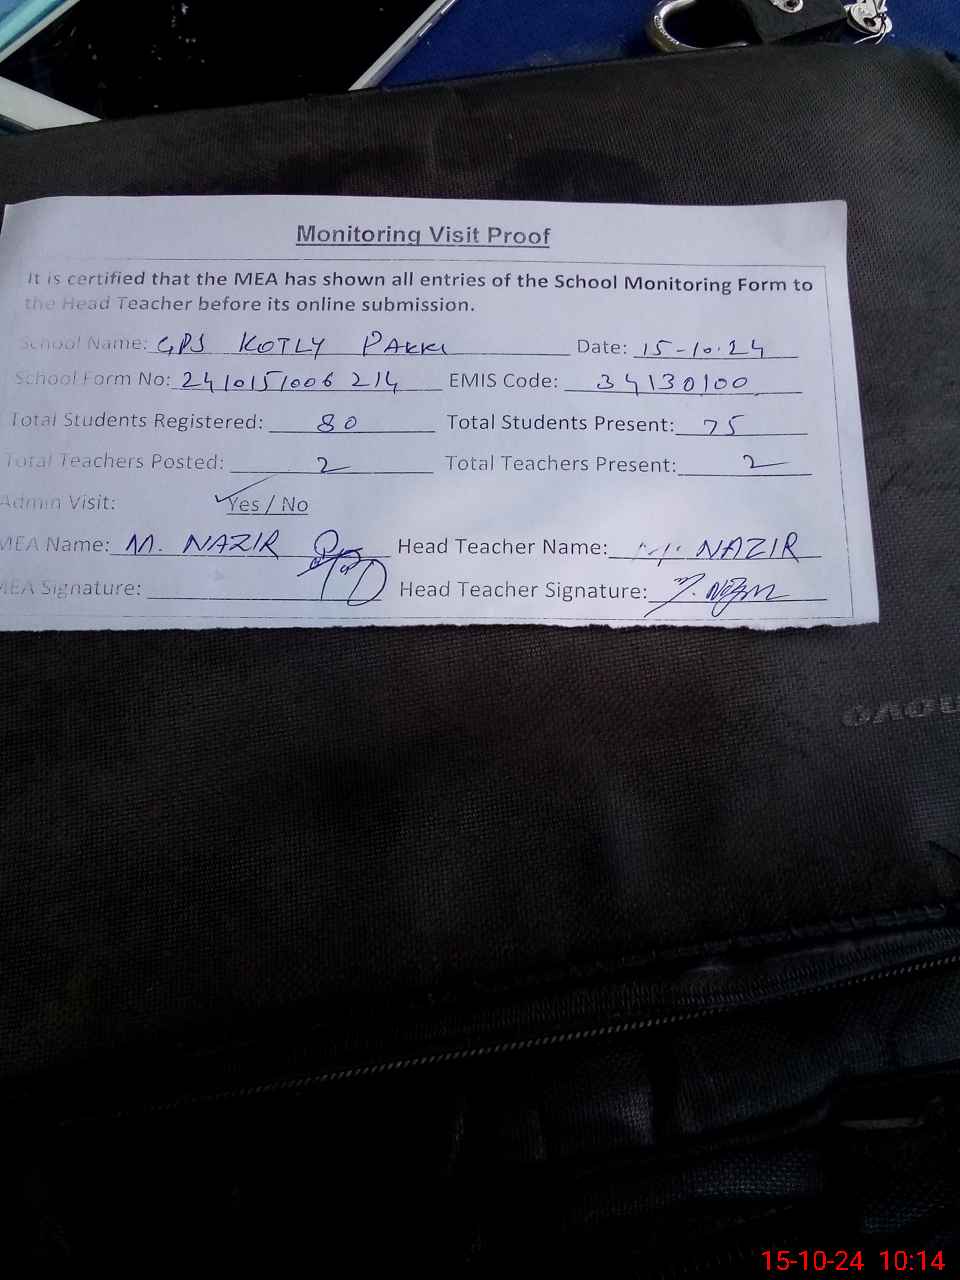 Monitoring Visit Proof
It is certified that the MEA has shown all entries of the School Monitoring Form to
the Head Teacher before its online submission.
School Name: GPS KOTLY PAKKI Date: 15-10-24
School Form No: 2410151006 214 EMIS Code: 34130100
Total Students Registered: 80 Total Students Present: 75
Total Teachers Posted: 2 Total Teachers Present: 2
Admin Visit: Yes / No
MEA Name: M. NAZIR Head Teacher Name: M. NAZIR
MEA Signature: Head Teacher Signature:
15-10-24 10:14